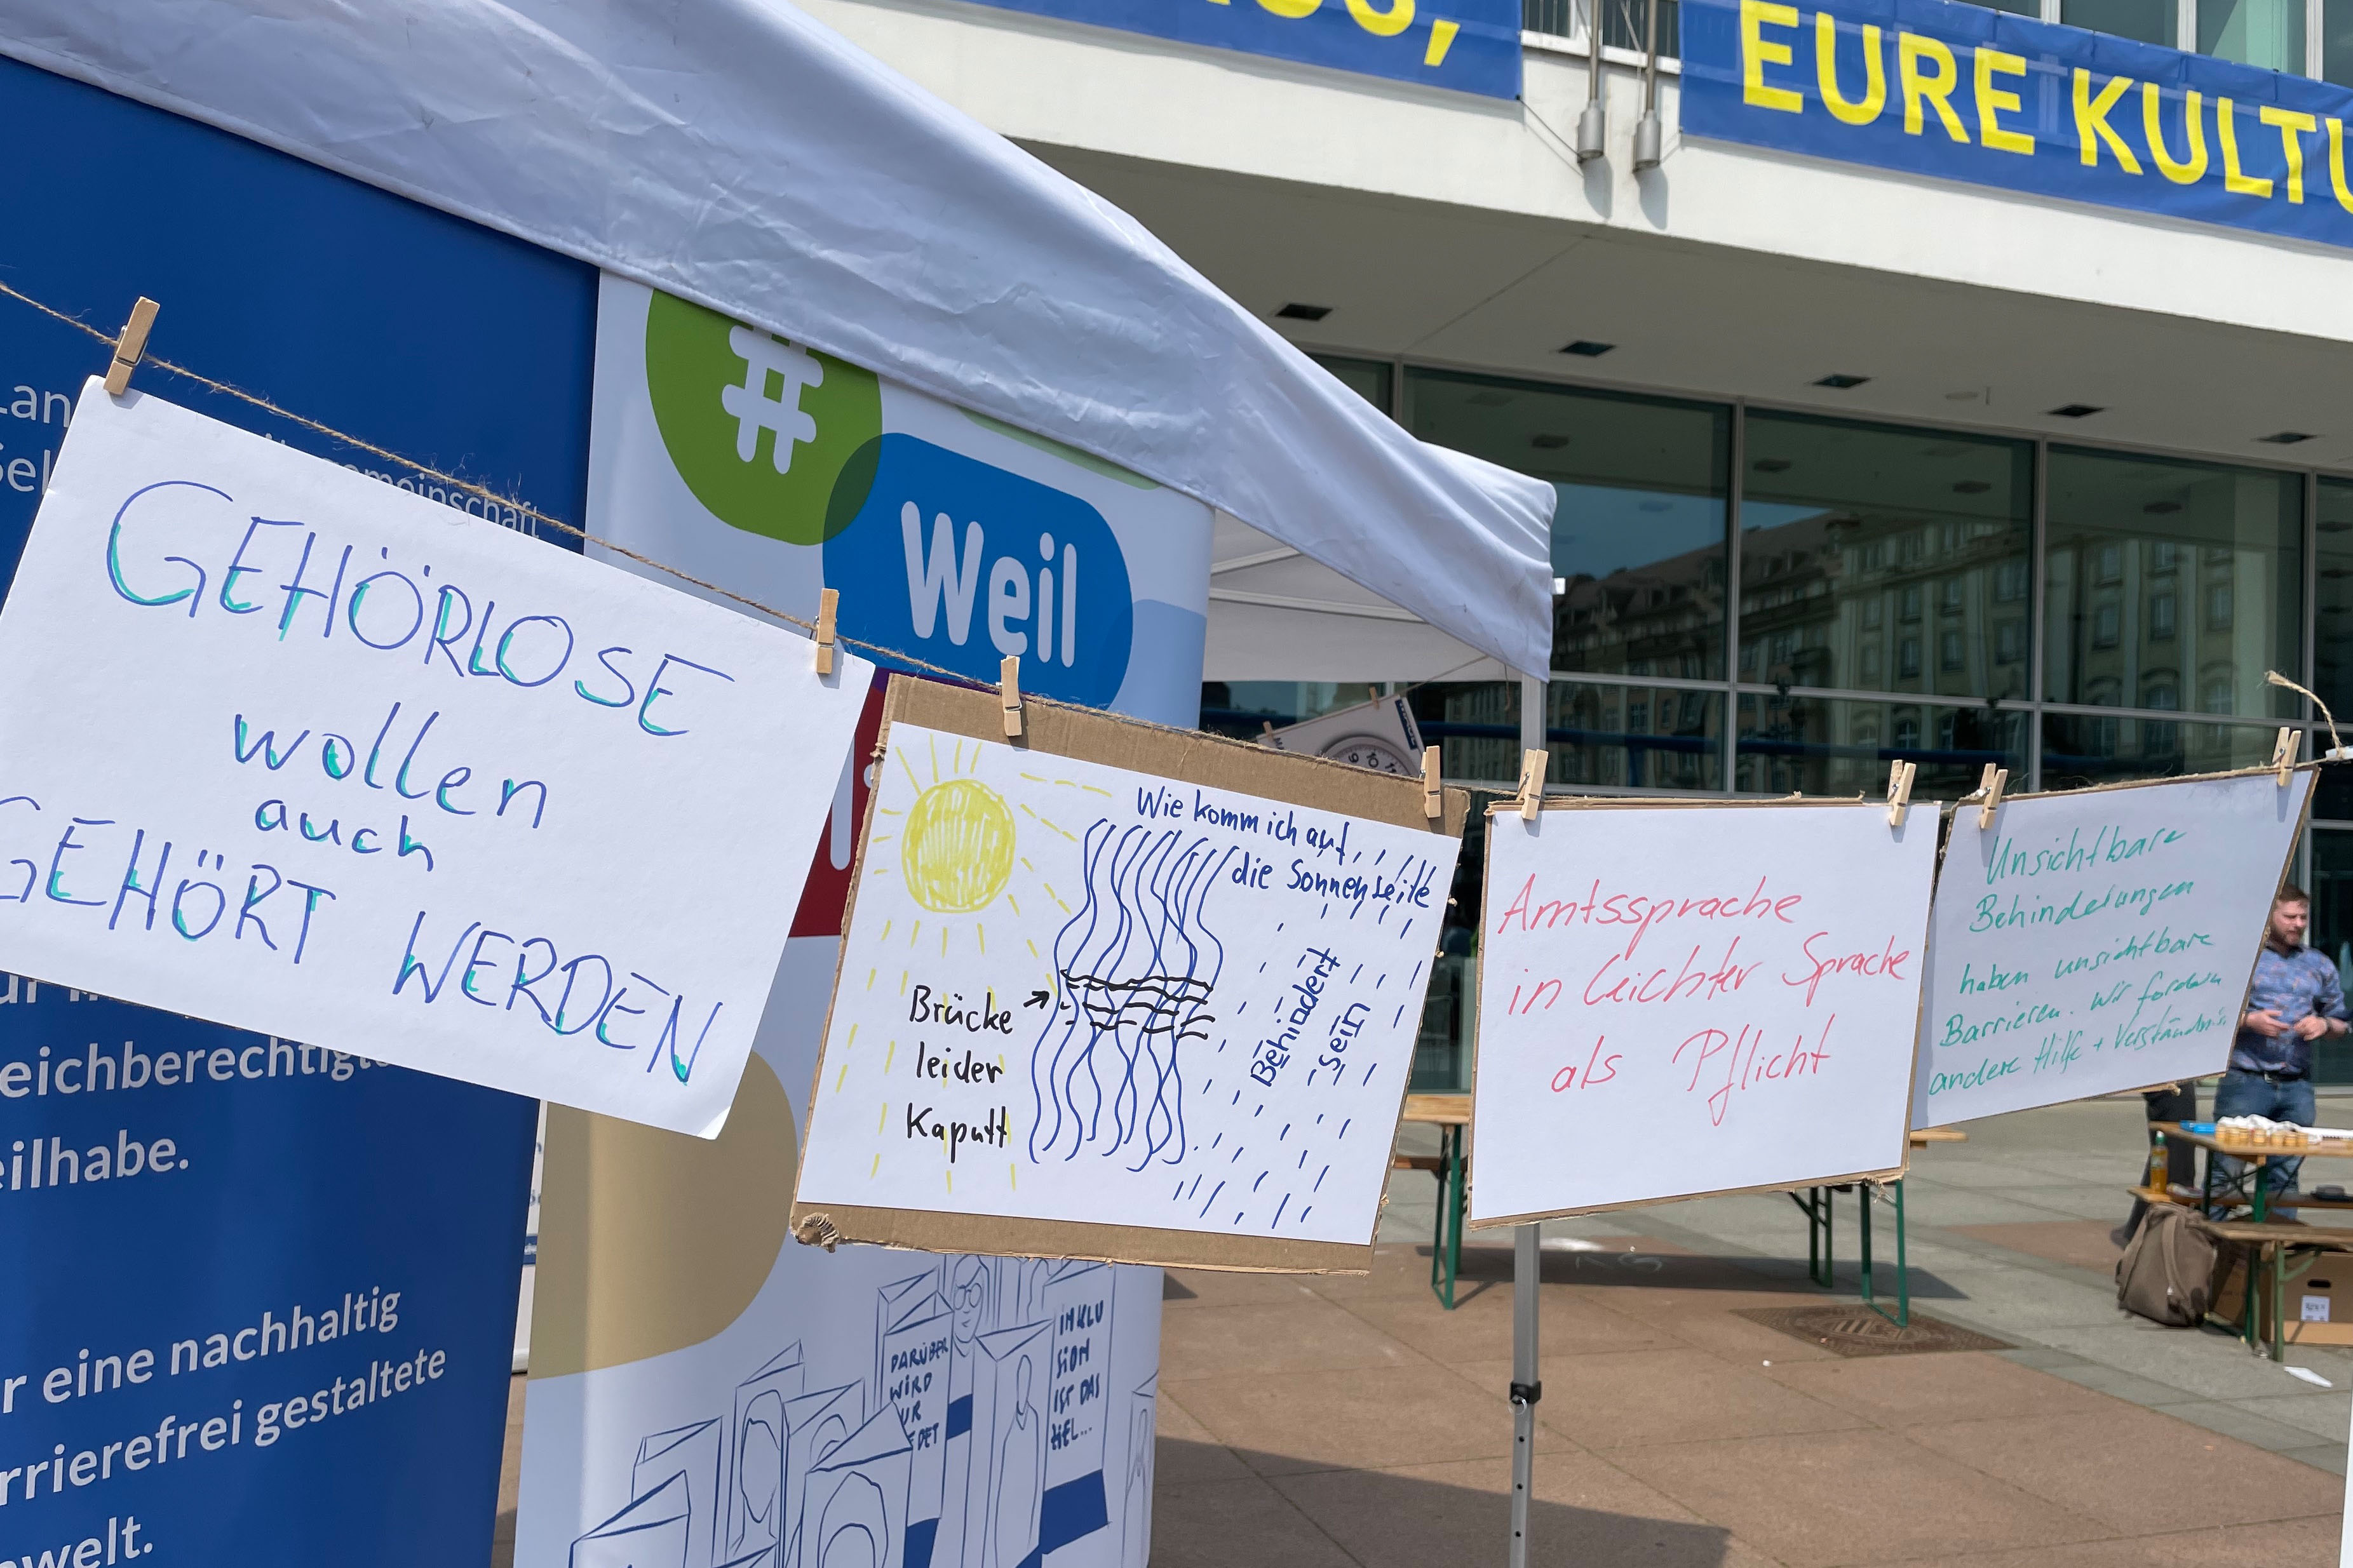 EURE KULTU
#
Weil
meinschaft
GEHÖRLOSE
wollen
auch
GEHÖRT WERDEN
eichberechtigte
eilhabe.
r eine nachhaltig
rrierefrei gestaltete
welt.
Wie komm ich auf
die Sonnenseite
Brücke
leider
Kaputt
Behindert
sein
Amtssprache
in leichter Sprache
als Pflicht
Unsichtbare
Behinderungen
haben unsichtbare
Barrieren. Wir fordern
andere Hilfe + Verständnis
DARÜBER
WIRD
UR
DET
INKLU
SION
IST DAS
ZIEL...